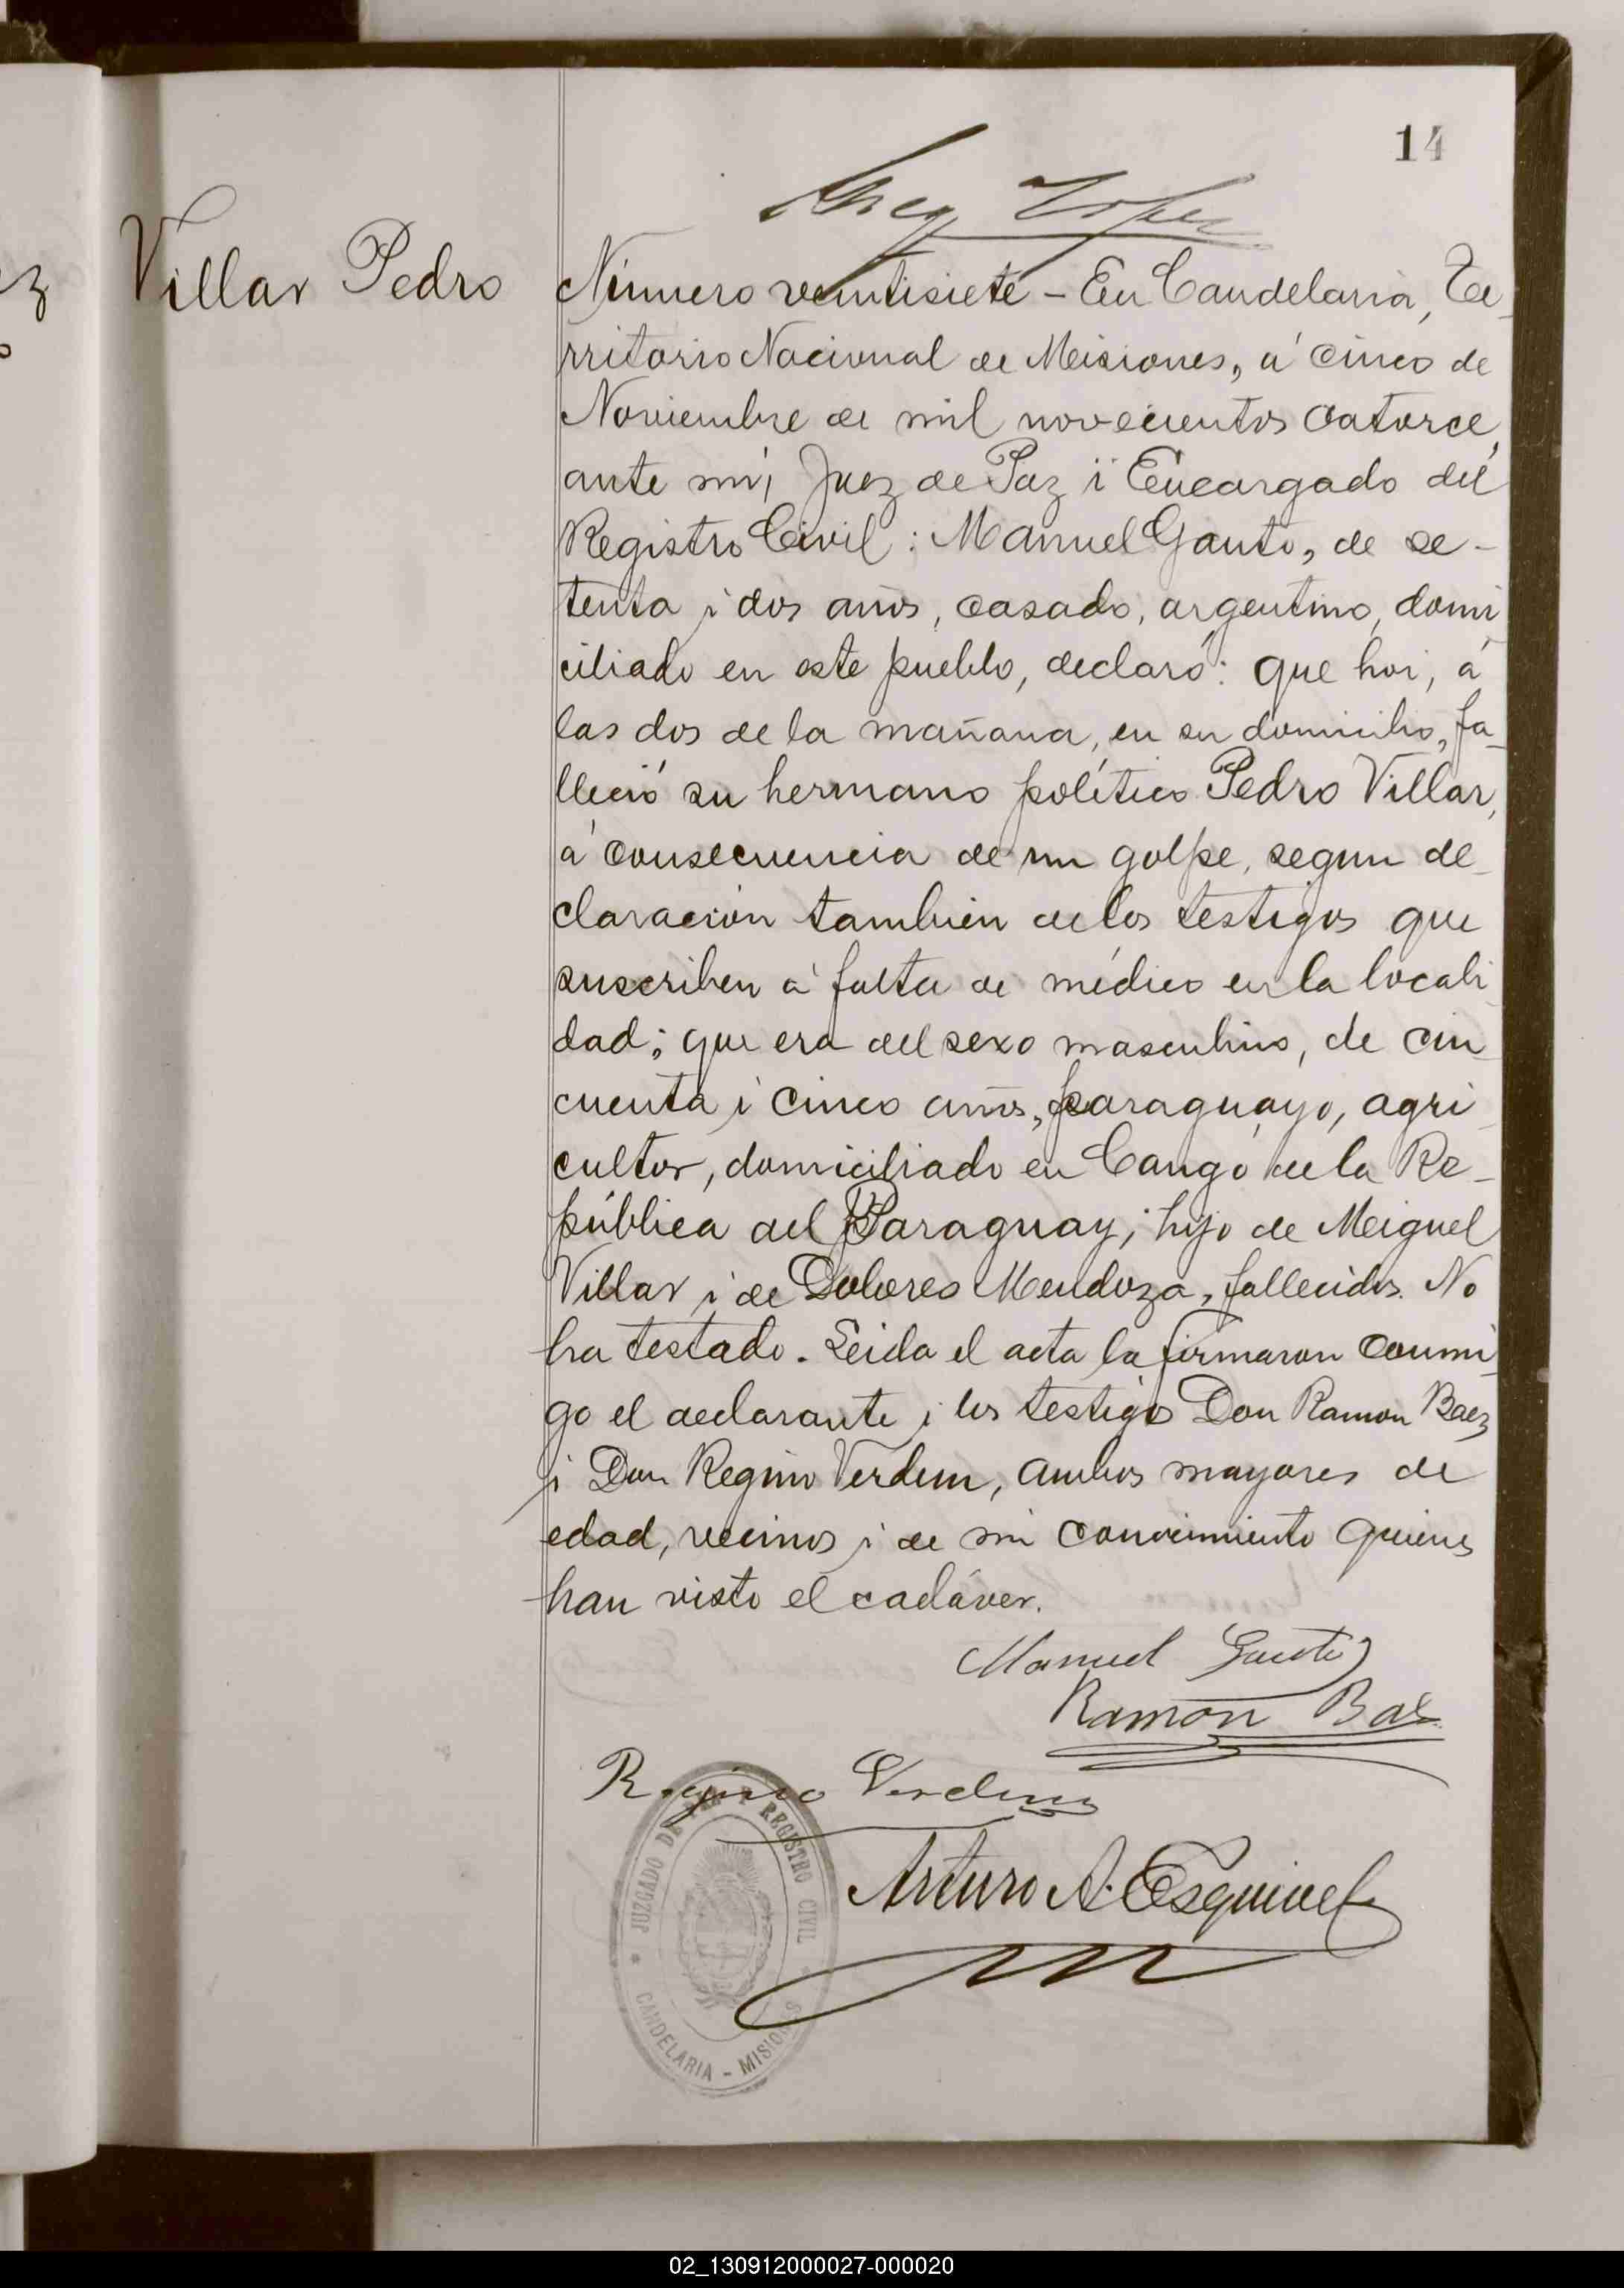 14
Lopez
Villar Pedro
Número veintisiete – En Candelaria, Te-
rritorio Nacional de Misiones, á cinco de
Noviembre de mil novecientos catorce,
ante mí, Juez de Paz i Encargado del
Registro Civil: Manuel Gauto, de se-
tenta i dos años, casado, argentino, domi
ciliado en este pueblo, declaró: que hoi, á
las dos de la mañana, en su domicilio, fa-
lleció su hermano político Pedro Villar,
á consecuencia de un golpe, segun de-
claración tambien de los testigos que
suscriben á falta de médico en la locali-
dad; que era del sexo masculino, de cin-
cuenta i cinco años, paraguayo, agri-
cultor, domiciliado en Cangó de la Re-
pública del Paraguay; hijo de Miguel
Villar i de Dolores Mendoza, fallecidos. No
ha testado. Leida el acta la firmaron conmi-
go el declarante i los testigos Don Ramon Baez
i Don Regino Verdun, ambos mayores de
edad, vecinos i de mi conocimiento quienes
han visto el cadáver.
Manuel Gauto
Ramon Bae
Regino Verdun
Arturo A. Esquivel
JUZGADO DE PAZ REGISTRO CIVIL
CANDELARIA - MISIONES
02_130912000027-000020